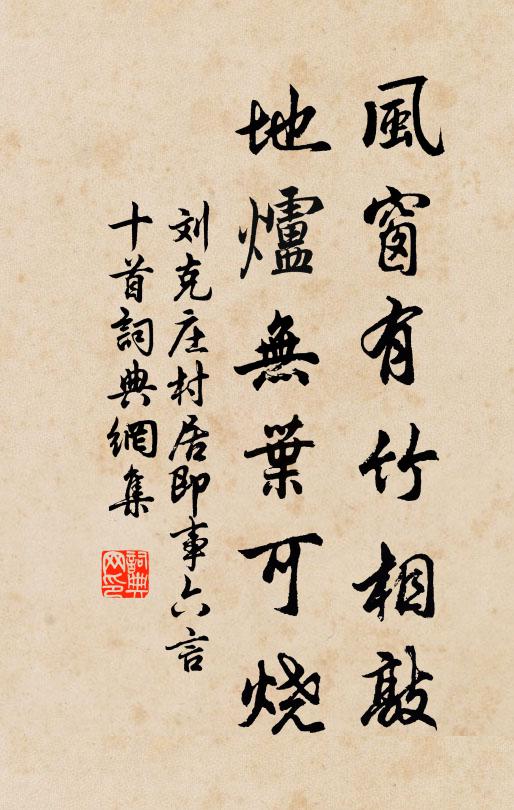 風窗有竹相敲
地爐無葉可烧
刘克庄村居即事六言
十首詞典網集
詞典网印